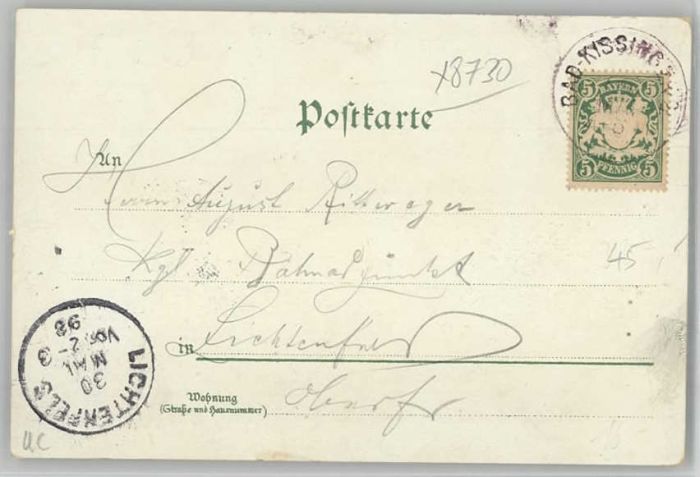 x8730
BAD-KISSING
BAYERN
5 5
5 PFENNIG 5
Postkarte
An
Herrn August Rittweger
Kgl. Bahnadjunkt
45
in Lichtenfels
Wohnung
(Straße und Hausnummer)
Oberfr
LICHTENFELS
30 MAI
Vor. 2-3
98
UC